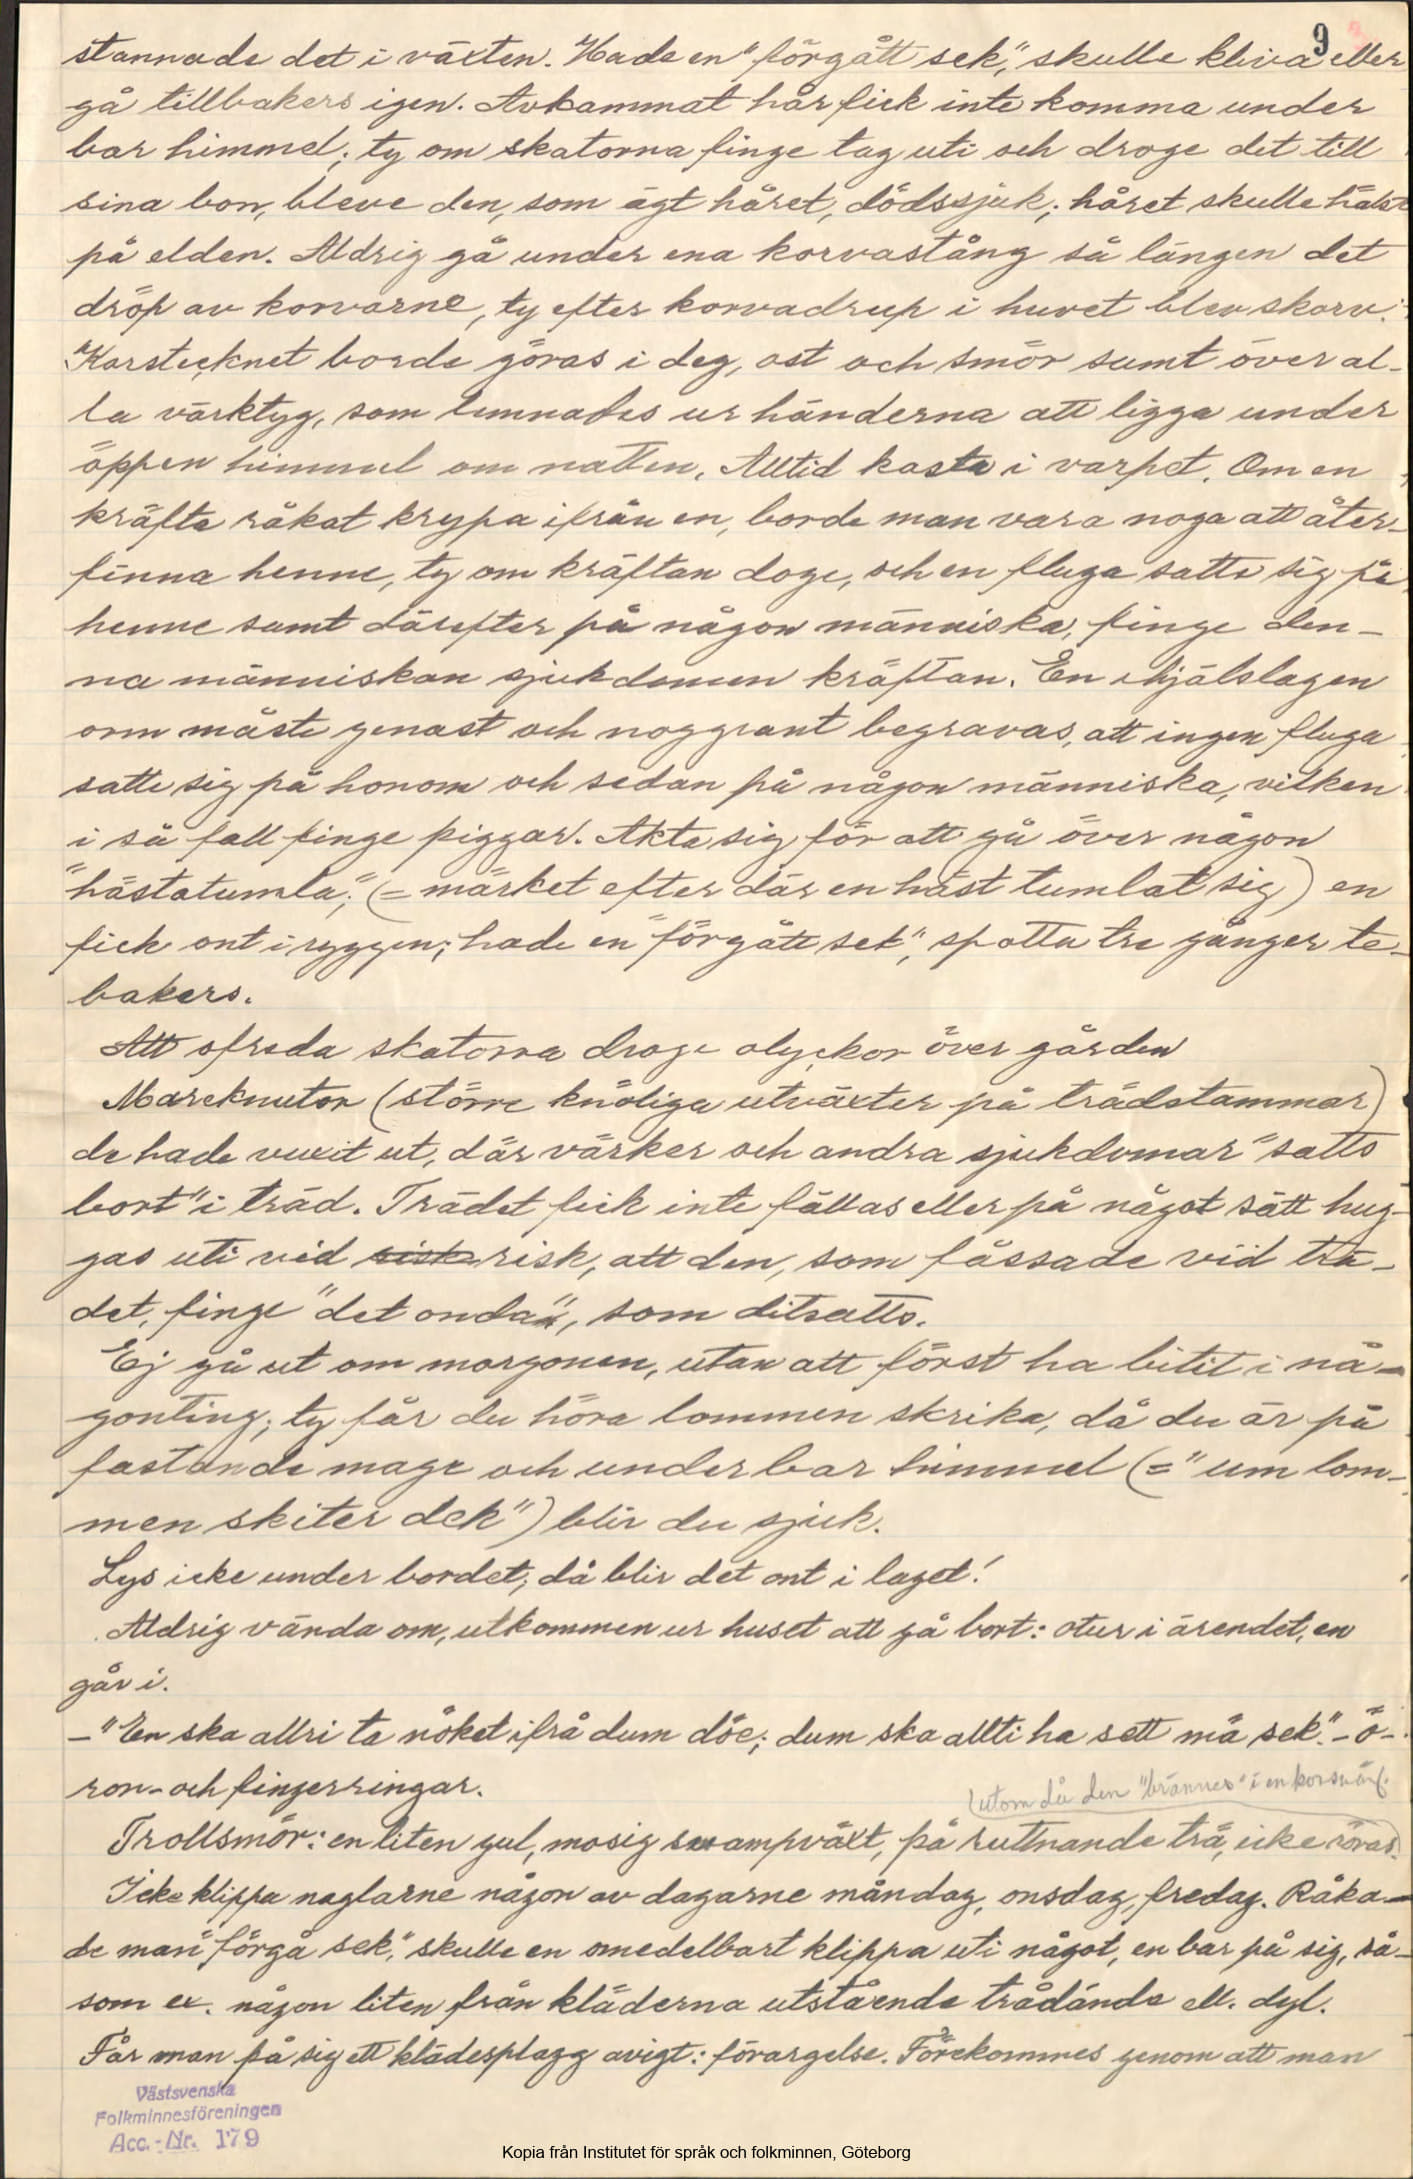 9
stannade det i växten. Hade en "förgått sek", skulle kliva eller
gå tillbakers igen. Avkammat hår fick inte komma under
bar himmel; ty om skatorna finge tag uti och droge det till
sina bon, bleve den, som ägt håret, dödssjuk; håret skulle hälst
på elden. Aldrig gå under ena korvastång så längen det
dröp av korvarne, ty efter korvadrup i huvet blev skorv.
Korstecknet borde göras i deg, ost och smör samt över al-
la värktyg, som lemnades ur händerna att ligga under
öppen himmel om natten. Alltid kasta i varpet. Om en
kräfta råkat krypa ifrån en, borde man vara noga att åter-
finna henne, ty om kräftan doge, och en fluga satte sig på
henne samt därefter på någon människa, finge den-
na människan sjukdomen kräftan. En ihjälslagen
orm måste genast och noggrant begravas, att ingen fluga
satte sig på honom och sedan på någon människa, vilken
i så fall finge piggar. Akta sig för att gå över någon
"hästatumla"; (= märket efter där en häst tumlat sig) en
fick ont i ryggen; hade en "förgått sek", spotta tre gånger te-
bakers.
Att ofreda skatorna droge olyckor över gården
Mareknutor (större knöliga utväxter på trädstammar)
de hade vuxit ut, där värker och andra sjukdomar "satts
bort" i träd. Trädet fick inte fällas eller på något sätt hug-
gas uti vid risk risk, att den, som fässade vid trä-
det, finge "det onda", som ditsatts.
Ej gå ut om morgonen, utan att först ha bitit i nå-
gonting; ty får du höra lommen skrika, då du är på
fastande mage och under bar himmel (= "um lom-
men skiter dek") blir du sjuk.
Lys icke under bordet; då blir det ont i laget!
Aldrig vända om, utkommen ur huset att gå bort: otur i ärendet, en
går i.
- "En ska allri ta nöket ifrå dum döe; dum ska allti ha sett mä sek". - ö-
ron- och fingerringar.
(utom då den "brännes" i en korsväg.
Trollsmör: en liten gul, mosig svampväxt, på ruttnande trä, icke röras.
Icke klippa naglarne någon av dagarne måndag, onsdag, fredag. Råka-
de man "förgå sek", skulle en omedelbart klippa uti något, en bar på sig, så-
som ex. någon liten från kläderna utstående trådända ell. dyl.
Får man på sig ett klädesplagg avigt: förargelse. Förekommes genom att man
Västsvenska
Folkminnesföreningen
Acc.-Nr. 179
Kopia från Institutet för språk och folkminnen, Göteborg